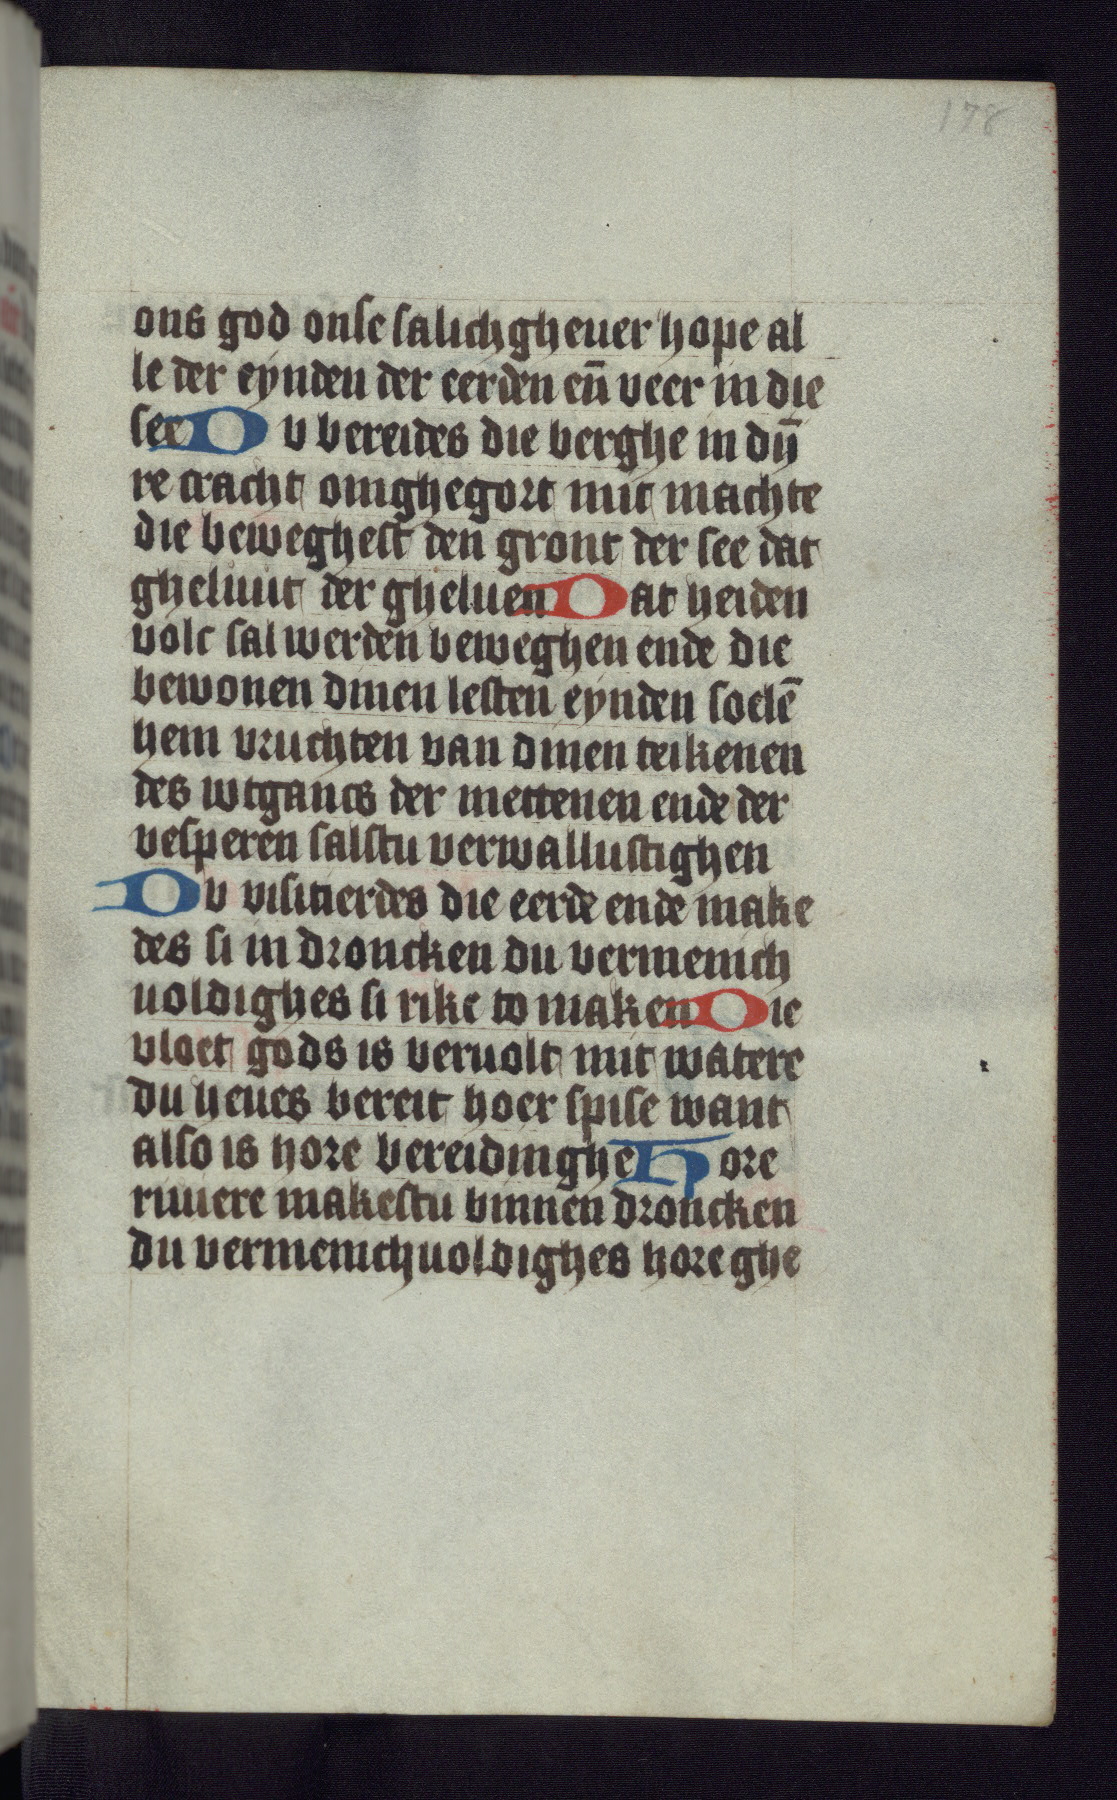 178
ons god onse salichgheuer hope al
le der eynden der eerden en̄ veer in die
see Du bereides die berghe in dyn̄
re cracht omghegort mit machte
die beweghest den gront der see dat
gheluut der gheluen Dat heiden
volc sal werden beweghen ende die
bewonen dinen lesten eynden soelē
hem vruchten van dinen teikenen
des wtgancs der mettenen ende der
vesperen salstu verwallustighen
Du visitierdes die eerde ende make
des si in droncken du vermenich
uoldighes si rike to maken Die
vloet gods is veruolt mit watere
du heues bereit hoer spise want
also is hore bereidinghe Hore
riuiere makestu binnen droncken
du vermenichuoldighes hore ghe